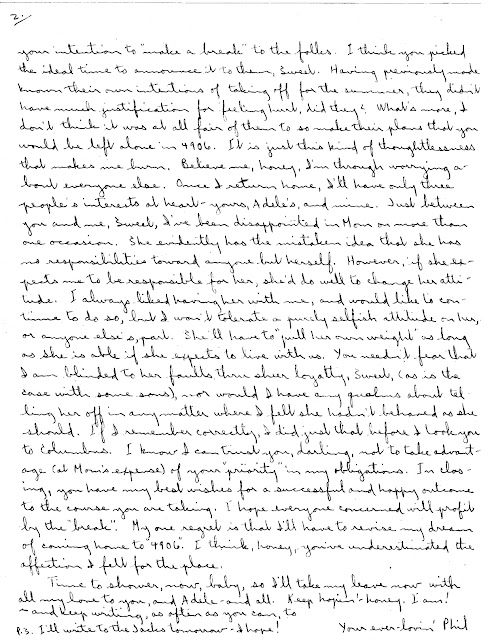 2.
your intention to "make a break" to the folks. I think you picked
the ideal time to announce it to them, Sweet. Having previously made
known their own intentions of taking off for the summer, they didn't
have much justification for feeling hurt, did they? What's more, I
don't think it was at all fair of them to so make their plans that you
would be left alone in 4906. It is just this kind of thoughtlessness
that makes me burn. Believe me, honey, I'm through worrying a-
bout everyone else. Once I return home, I'll have only three
people's interests at heart - yours, Adele's, and mine. Just between
you and me, Sweet, I've been disappointed in Mom on more than
one occasion. She evidently has the mistaken idea that she has
no responsibilities toward anyone but herself. However, if she ex-
pects me to be responsible for her, she'd do well to change her atti-
tude. I always liked having her with me, and would like to con-
tinue to do so, but I won't tolerate a purely selfish attitude on her,
or anyone else's, part. She'll have to "pull her own weight" as long
as she is able if she expects to live with us. You needn't fear that
I am blinded to her faults thru sheer loyalty, Sweet, (as is the
case with some sons), nor would I have any qualms about tel-
ling her off in any matter where I felt she hadn't behaved as she
should. If I remember correctly, I did just that before I took you
to Columbus. I know I can trust you, darling, not to take advant-
age (at Mom's expense) of your "priority" in my obligations. In clos-
ing, you have my best wishes for a successful and happy outcome
to the course you are taking. I hope everyone concerned will profit
by the "break". My one regret is that I'll have to revise my dream
of coming home to "4906". I think, honey, you've underestimated the
affection I felt for the place.
Time to shower, now, baby, so I'll take my leave now with
all my love to you, and Adele - and all. Keep hopin'- honey. I am!
- and keep writing, as often as you can, to
Your ever-lovin' Phil
P.S. I'll write to the Jacks tomorrow - I hope!